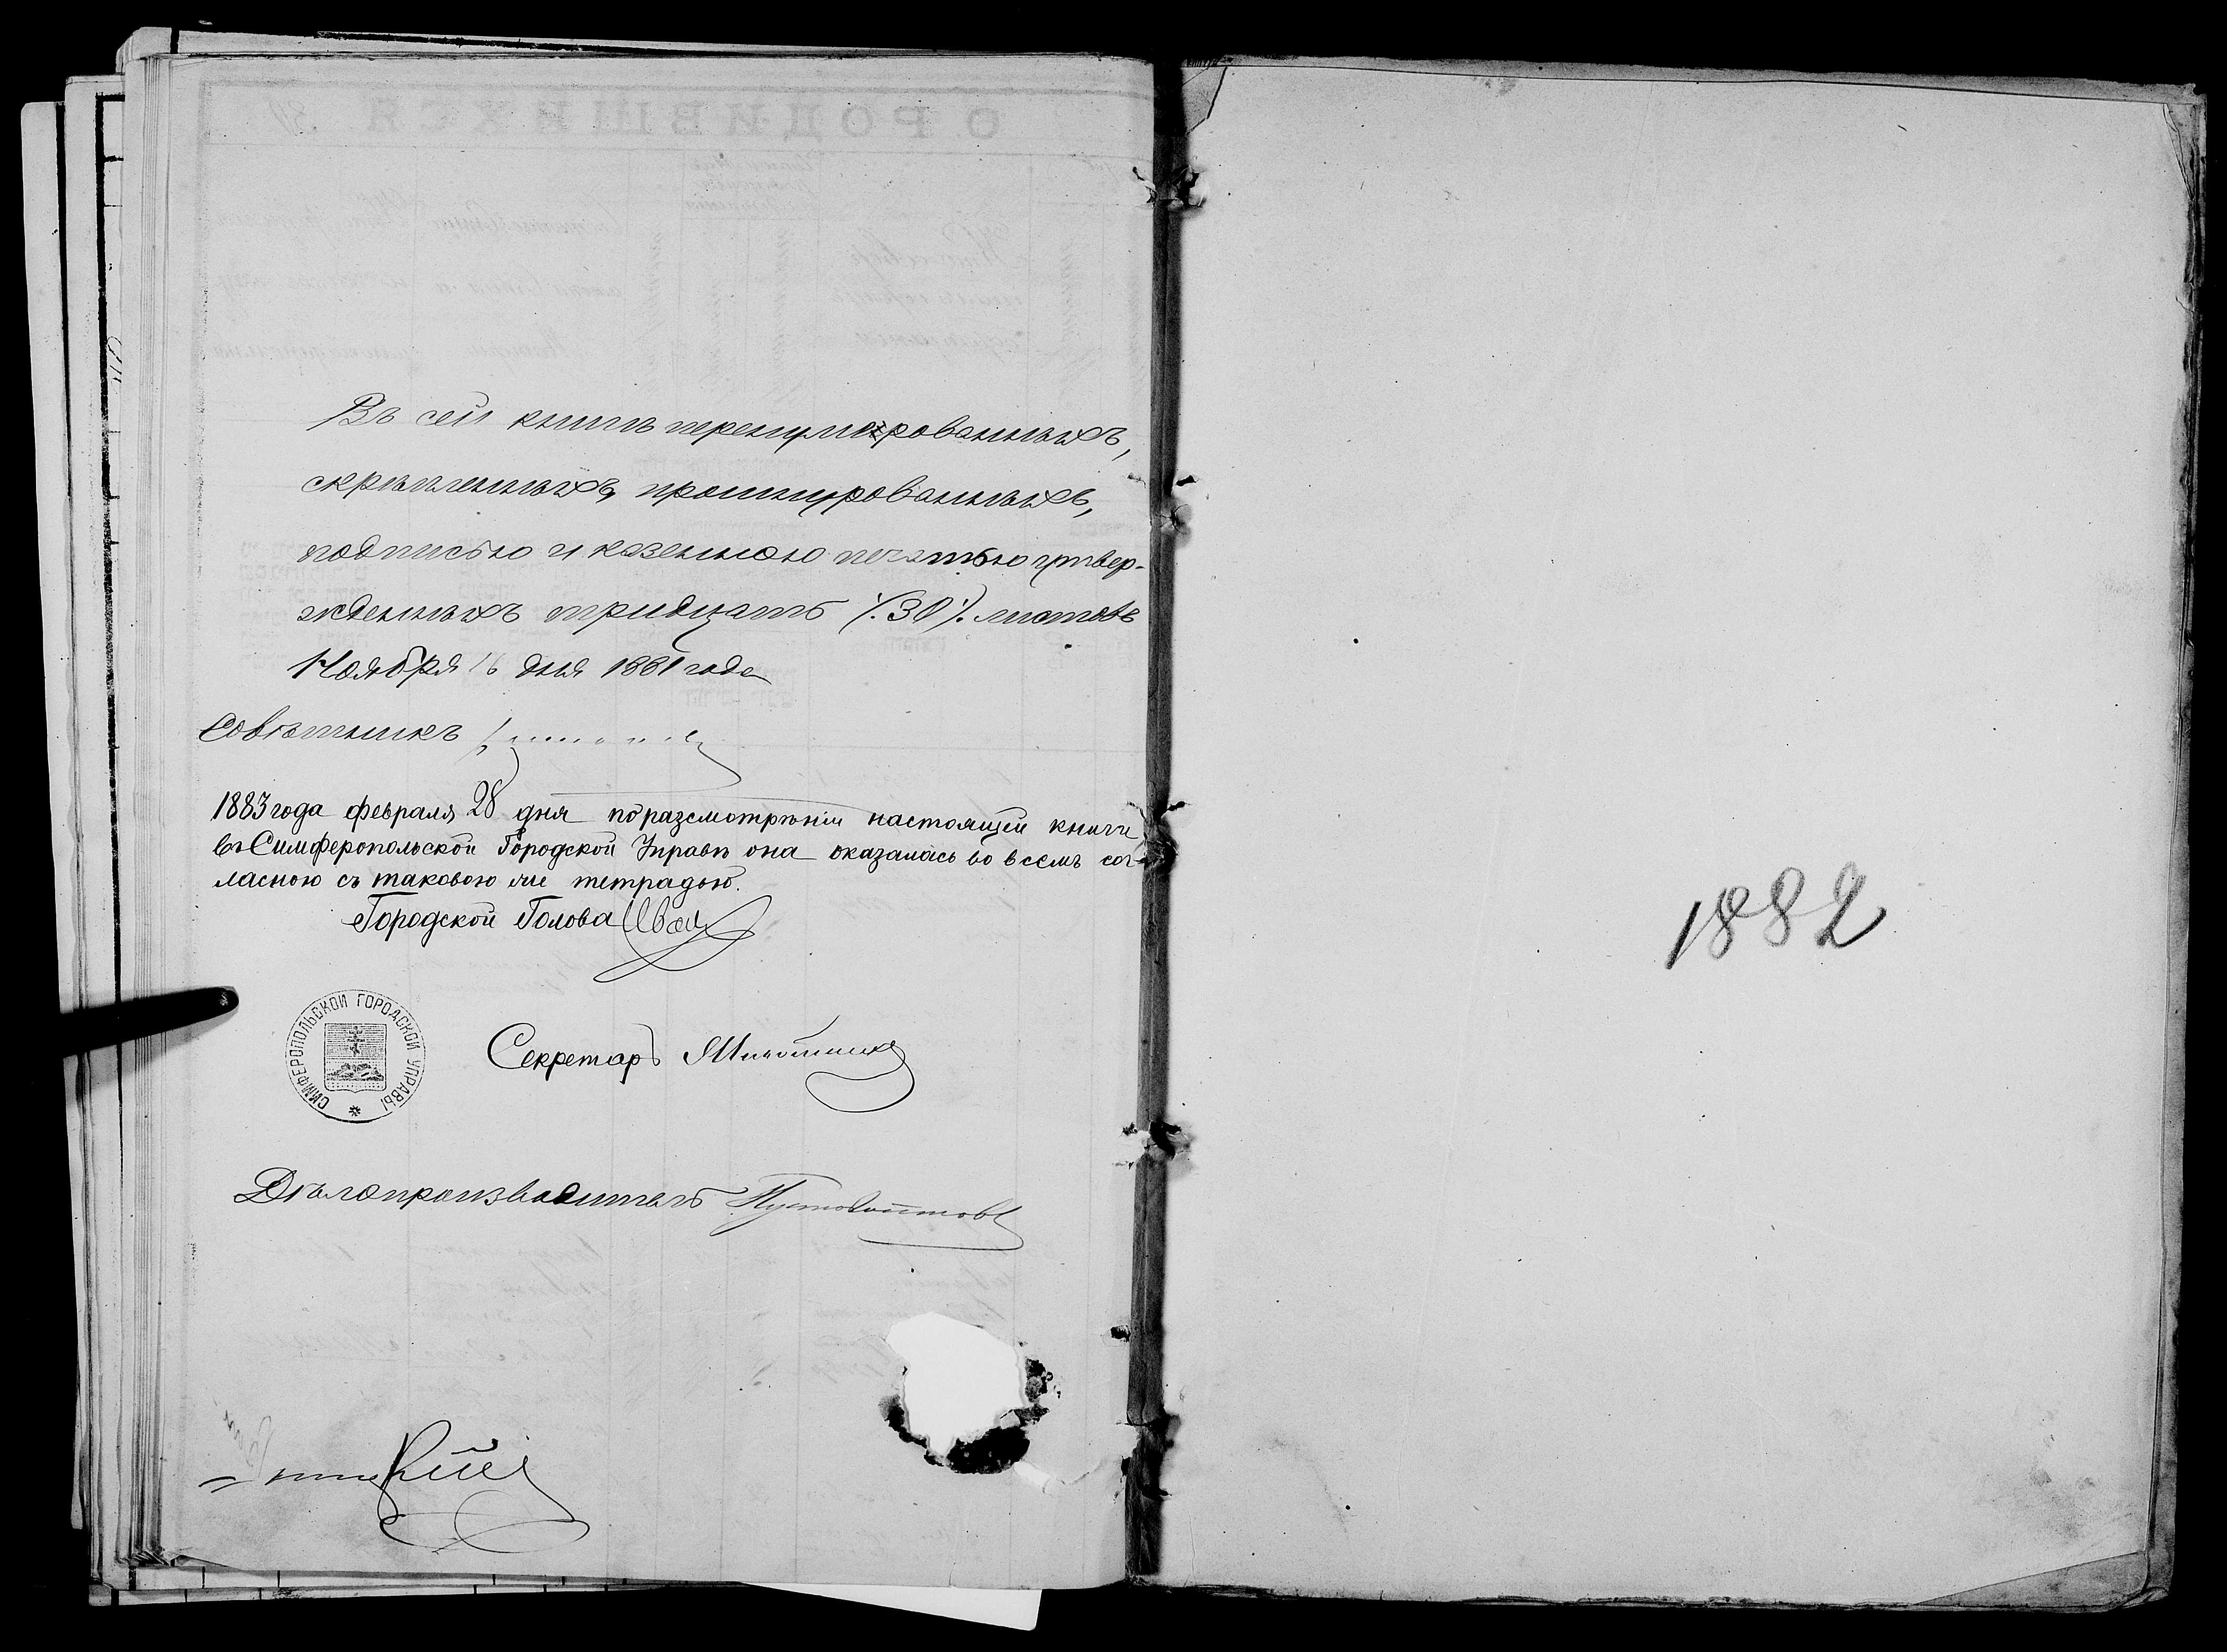 Въ сей книгѣ перенумерованныхъ,
скрѣпленныхъ, прошнурованныхъ,
подписью и казенною печатью утвер-
жденныхъ тридцать (30) листовъ
Ноября 16 дня 1881 года
Совѣтникъ
1883 года февраля 28 дня по разсмотрѣніи настоящей книги
въ Симферопольской Городской Управѣ она оказалась во всемъ сог-
ласною съ таковою же тетрадью.
Городской Голова Иван
СИМФЕРОПОЛЬСКОЙ ГОРОДСКОЙ УПРАВЫ
Секретарь
Дѣлопроизводитель Пустовойтовъ
1882
О РОДИВШИХСЯ 30